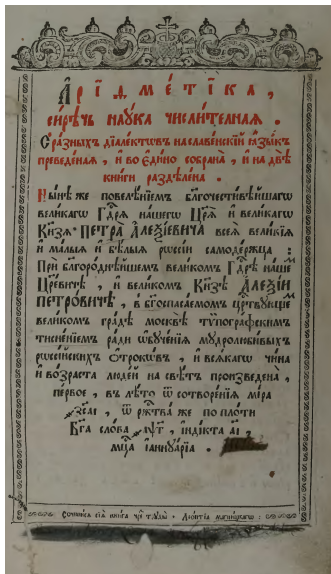 Аріѳме́тіка,
си́рѣчь наꙋ́ка числи́телная.
С̾ра́зныхъ діале́ктѡвъ на слаvéнскій ꙗ҆зы́къ
преведе́ная, и҆ во є҆ди́но собрана̀, и҆ на двѣ̀
кни́ги раздѣле́на.
Ны́нѣ же повелѣ́нїемъ благочести́вѣйшагѡ
вели́кагѡ Гд҇рѧ на́шегѡ Цр҃ѧ̀ и҆ вели́кагѡ
Кн҃зѧ ПЕТРА̀ А҆леѯі́евича всеѧ̀ вели́кїѧ
и҆ ма́лыѧ и҆ бѣ́лыѧ рѡссі́и самоде́ржца:
Прѝ благоро́днѣйшемъ вели́комъ Гд҇рѣ на́шемъ
Цр҃е́вичѣ, и҆ вели́комъ Кн҃зѣ А҆леѯі́и
Петро́вичѣ, в бг҃оспаса́емомъ ца́рствꙋющемъ
вели́комъ гра́дѣ москвѣ̀ тѷпогра́фскимъ
тисне́нїемъ ра́ди ѡ҆бꙋче́нїѧ мꙋдролюби́выхъ
рѡссі́йскихъ ѻ҆́трокѡвъ, и҆ всѧ́кагѡ чи́на
и҆ во́зраста люде́й на свѣ́тъ произведена̀,
пе́рвое, в лѣ́то ѿ сотворе́нїѧ мі́ра
҂зс҃аі, ѿ рж҇тва̀ же по пло́ти
Бг҃а сло́ва ҂аѱг҃, і҆нді́кта а҃і,
мц҇а і҆аннꙋа́рїа.
Сочини́сѧ сїѧ̀ кни́га чре́з трꙋды̀ Леѻ́нтїа магни́цкагѡ: